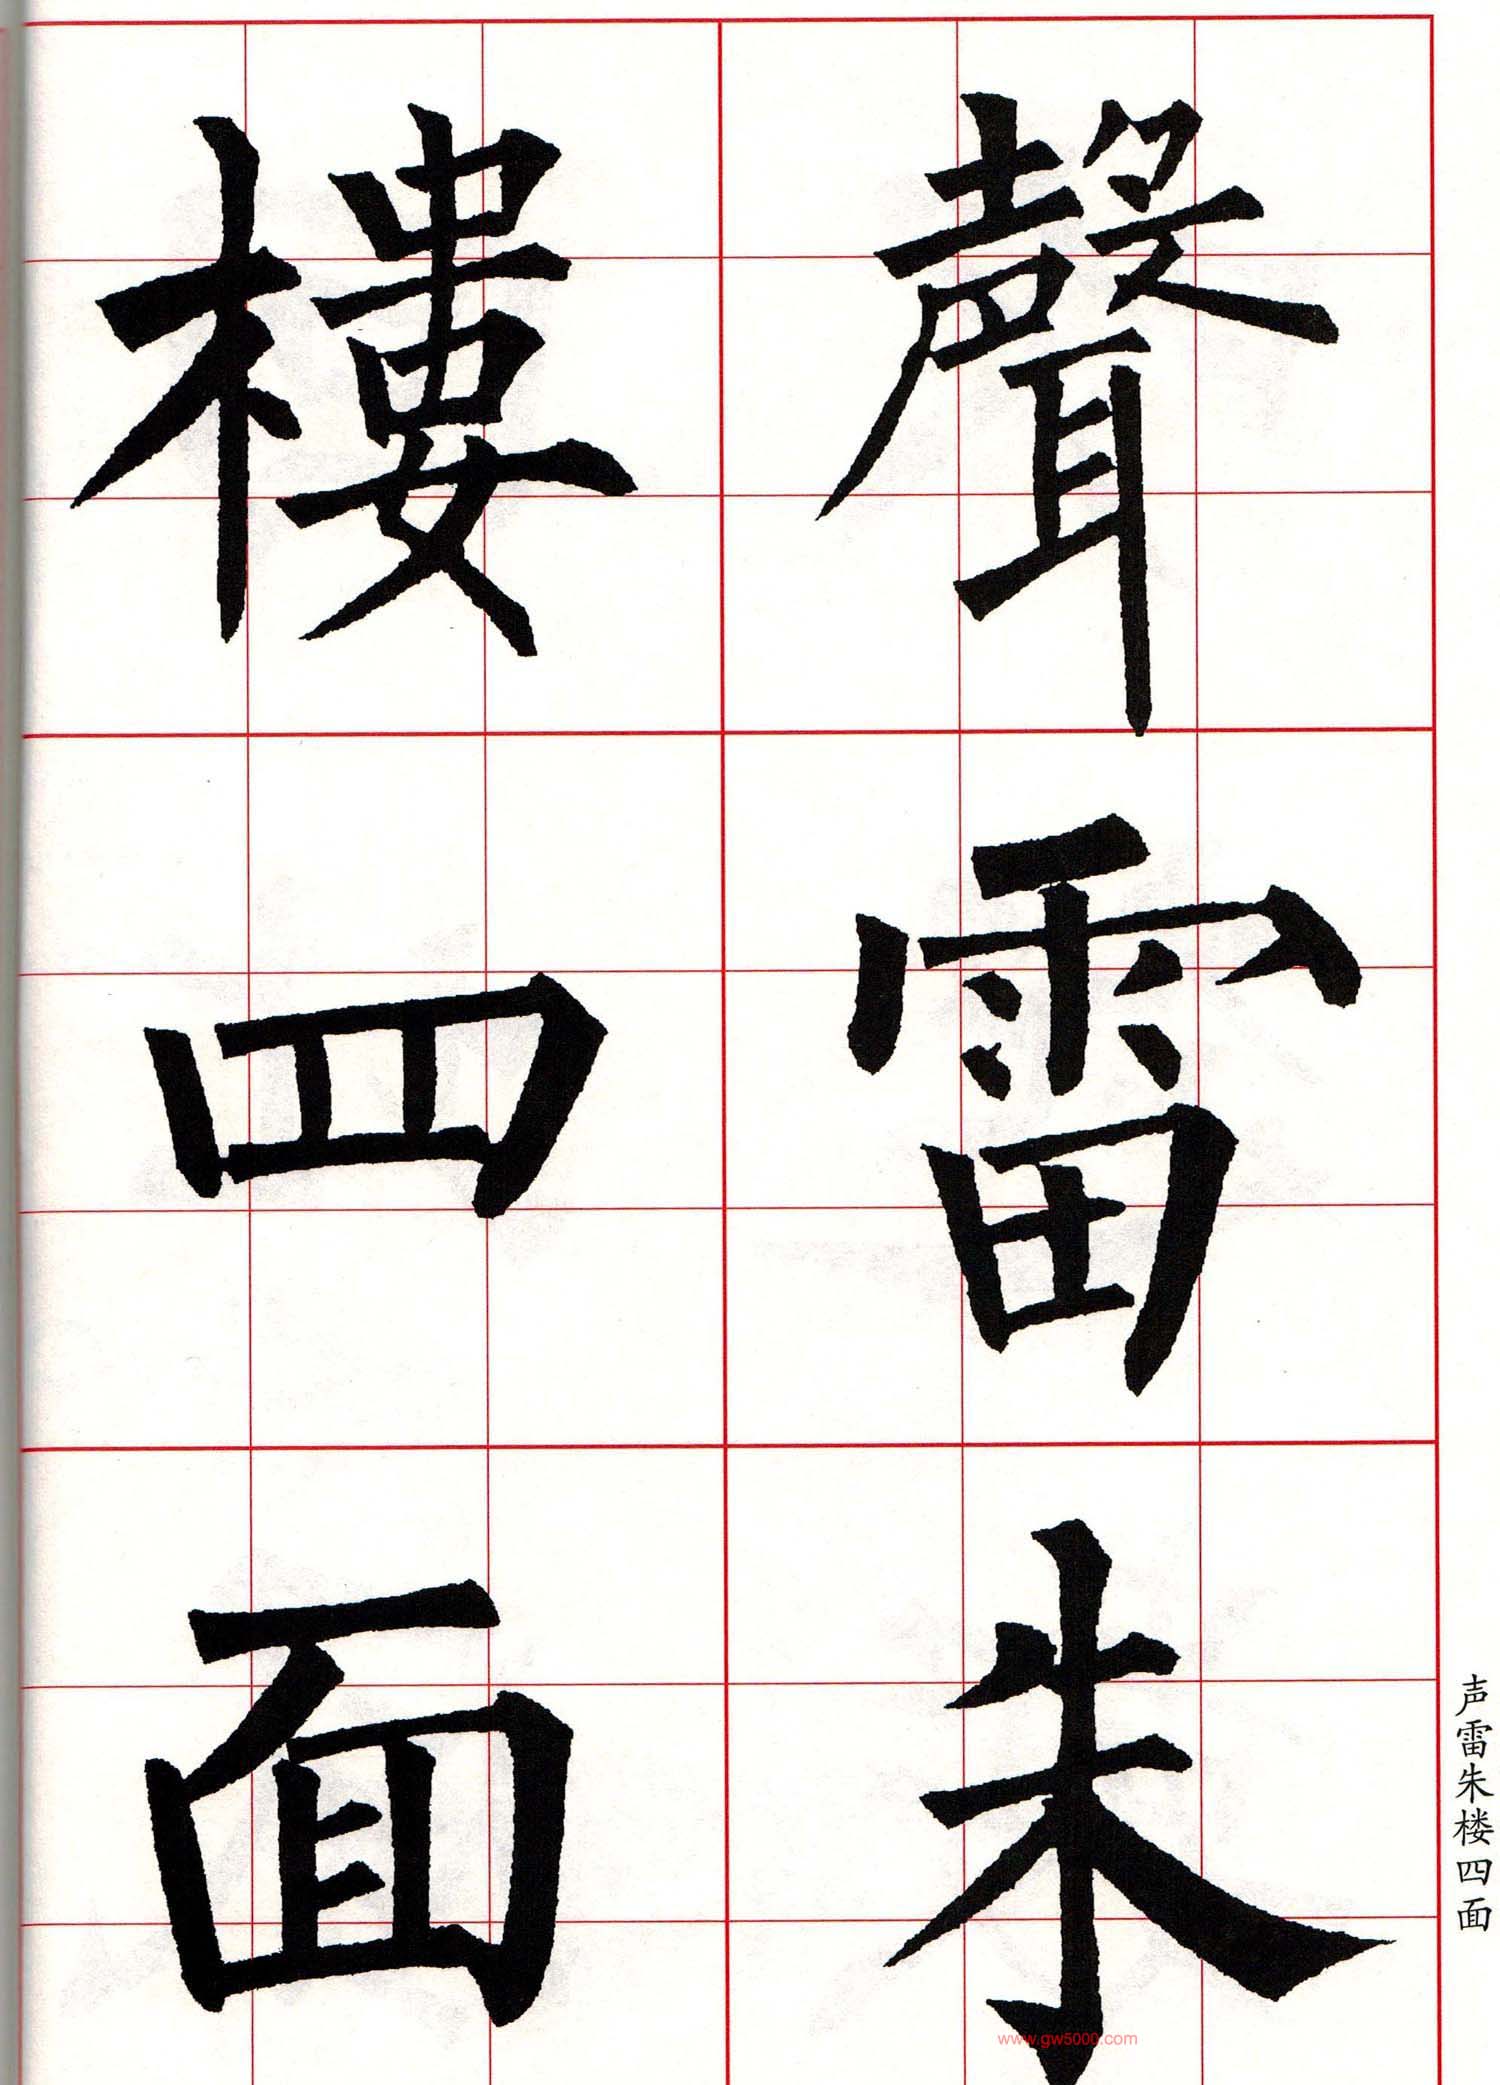 聲雷朱
樓四面
声雷朱楼四面
www.gw5000.com